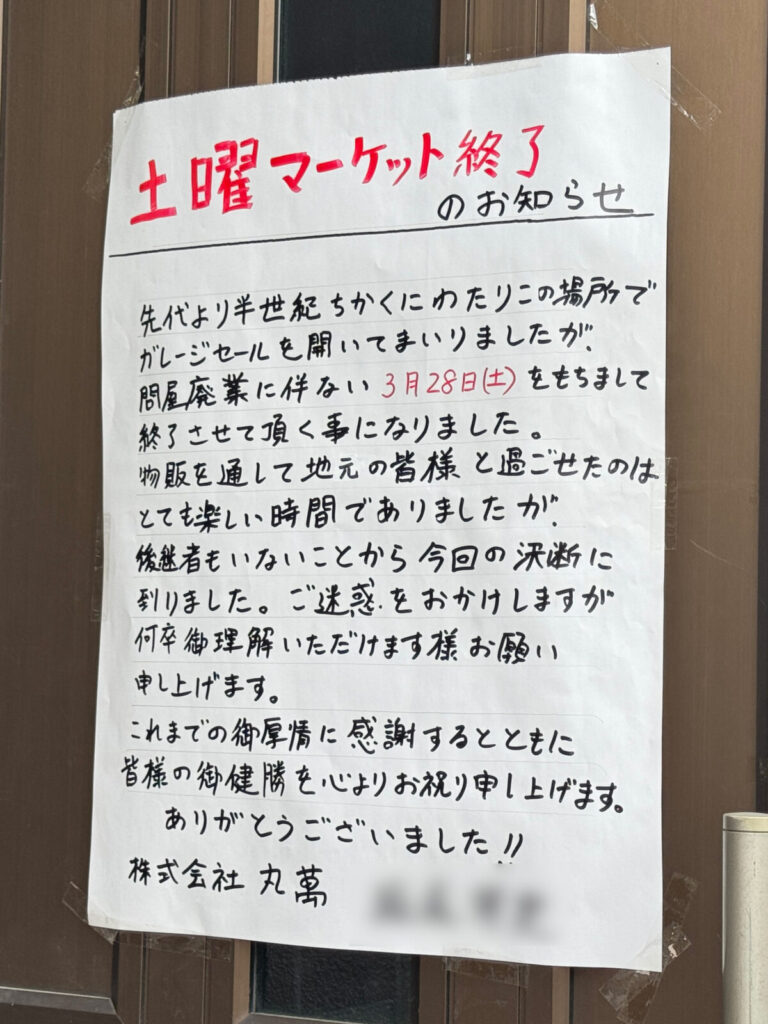 土曜マーケット終了
のお知らせ
先代より半世紀ちかくにわたりこの場所で
ガレージセールを開いてまいりましたが、
問屋廃業に伴ない3月28日(土)をもちまして
終了させて頂く事になりました。
物販を通して地元の皆様と過ごせたのは
とても楽しい時間でありましたが、
後継者もいないことから今回の決断に
到りました。ご迷惑をおかけしますが
何卒御理解いただけます様お願い
申し上げます。
これまでの御厚情に感謝するとともに
皆様の御健勝を心よりお祝り申し上げます。
ありがとうございました!!
株式会社 丸萬